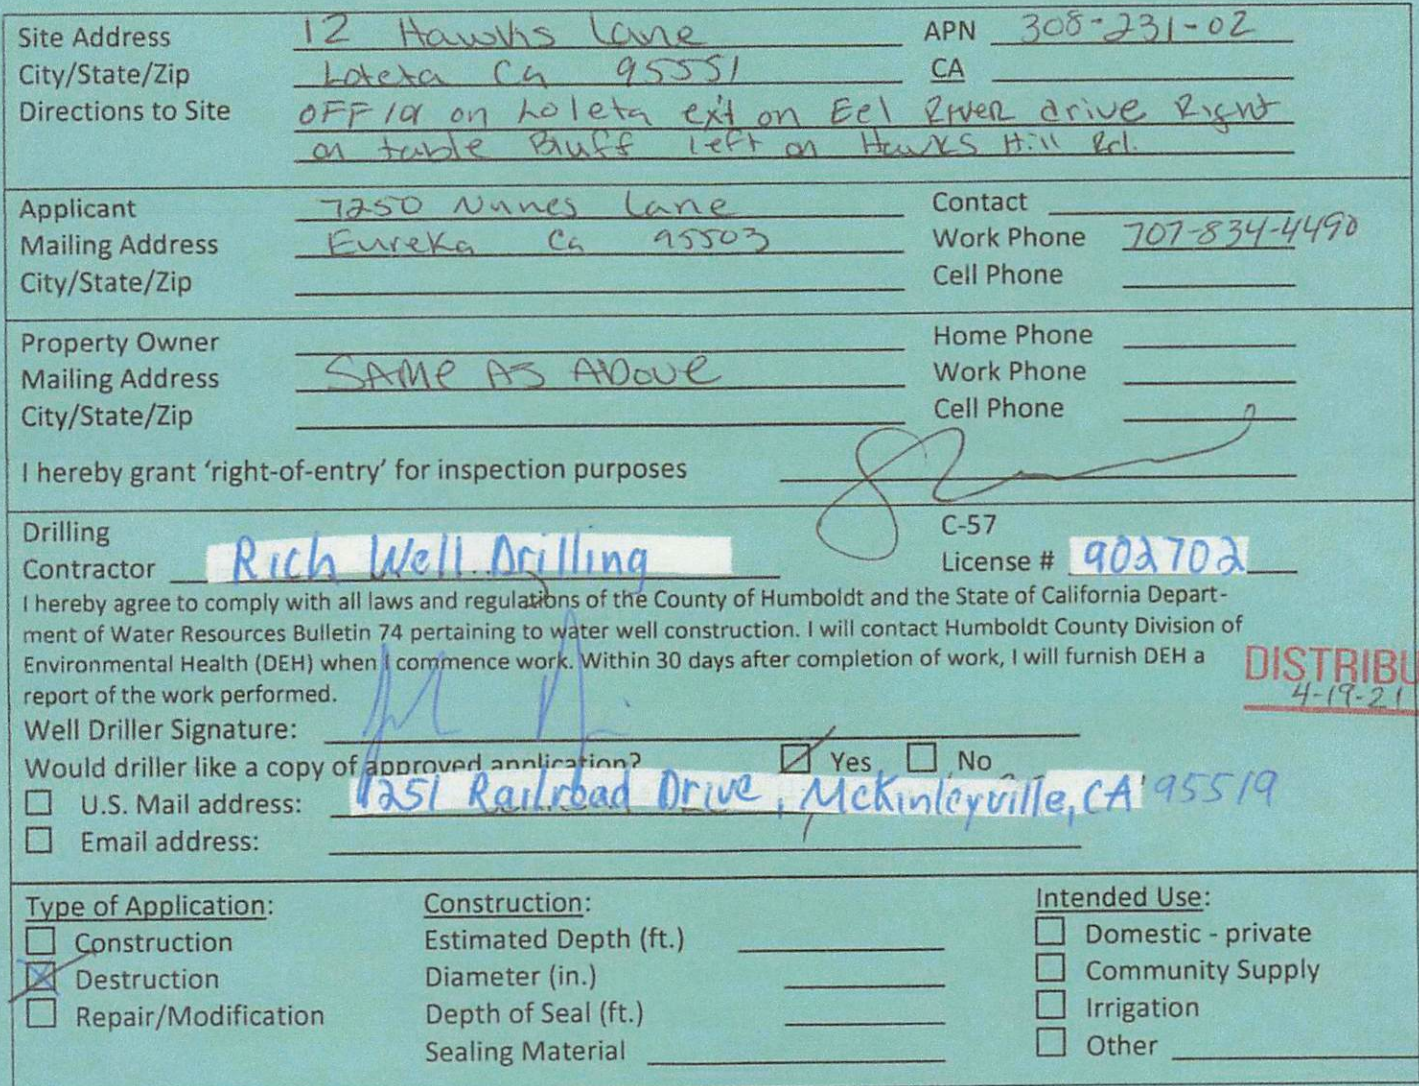 Site Address 12 Hawks Lane APN 308-231-02
City/State/Zip Loleta Ca 95551 CA
Directions to Site OFF 101 on Loleta exit on Eel River drive Right
on table Bluff left on Hawks Hill Rd.
Applicant 7250 Nunes Lane Contact
Mailing Address Eureka Ca 95503 Work Phone 707-834-4490
City/State/Zip Cell Phone
Property Owner Home Phone
Mailing Address SAMe AS ABove Work Phone
City/State/Zip Cell Phone
I hereby grant ‘right-of-entry’ for inspection purposes
Drilling C-57
Contractor Rich Well Drilling License # 902702
I hereby agree to comply with all laws and regulations of the County of Humboldt and the State of California Depart-
ment of Water Resources Bulletin 74 pertaining to water well construction. I will contact Humboldt County Division of
Environmental Health (DEH) when I commence work. Within 30 days after completion of work, I will furnish DEH a
report of the work performed.
DISTRIBU
4-19-21
Well Driller Signature:
Would driller like a copy of approved application? Yes No
U.S. Mail address: 1251 Railroad Drive, McKinleyville, CA 95519
Email address:
Type of Application: Construction: Intended Use:
Construction Estimated Depth (ft.) Domestic - private
Destruction Diameter (in.) Community Supply
Repair/Modification Depth of Seal (ft.) Irrigation
Sealing Material Other